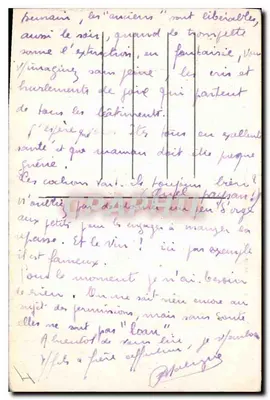 demain, les "anciens" sont libérables,
aussi le soir, quand la trompette
sonne l'extinction, en fantaisie, vous
imaginez sans peine, les cris et
hurlements de joie qui partent
de tous les bâtiments.
J'espère tous en excellente
santé et que maman doit être presque
guérie.
Les cochons vont-ils toujours bien?
un peu d'orge
aux petits pour les engager à manger
. Et le vin! ici par exemple
il est fameux.
Pour le moment je n'ai besoin
de rien. On ne sait rien encore au
sujet des permissions, mais sans doute
elles ne sont pas "loin"
A bientôt de vous lire, je
fils & frère affectueux,